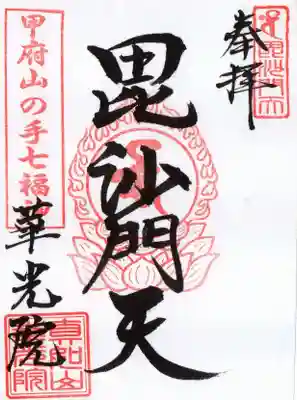 奉拝
毘沙門天
毘沙門天
甲府山の手七福
華光院